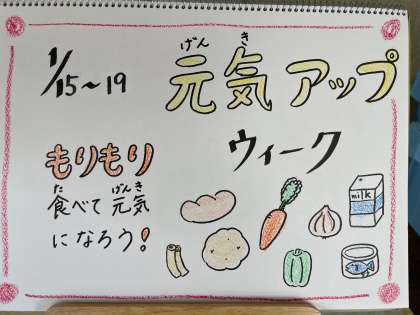 1/15~19
げんき
元気アップ
ウィーク
もりもり
た げんき
食べて元気
になろう!
milk